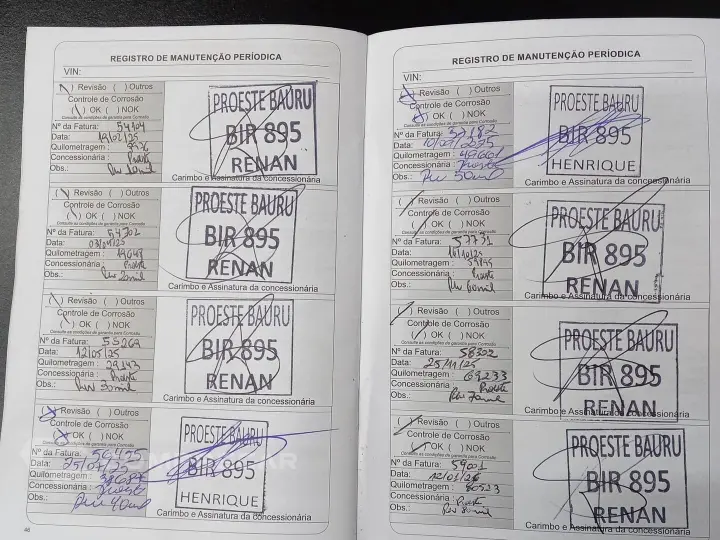 REGISTRO DE MANUTENÇÃO PERÍODICA
VIN:
Revisão ( ) Outros
Controle de Corrosão
OK ( ) NOK
Consulte as condições de garantia para Corrosão
Nº da Fatura: 54104
Data: 19/02/25
Quilometragem :
Concessionária : Proeste
Obs.: Rev 10mil
PROESTE BAURU
BIR 895
RENAN
Carimbo e Assinatura da concessionária
( ) Revisão ( ) Outros
Controle de Corrosão
( ) OK ( ) NOK
Consulte as condições de garantia para Corrosão
Nº da Fatura: 54702
Data: 03/04/25
Quilometragem : 19648
Concessionária : Proeste
Obs.: Rev 20mil
PROESTE BAURU
BIR 895
RENAN
Carimbo e Assinatura da concessionária
( ) Revisão ( ) Outros
Controle de Corrosão
( ) OK ( ) NOK
Consulte as condições de garantia para Corrosão
Nº da Fatura: 55269
Data: 12/05/25
Quilometragem : 29143
Concessionária : Proeste
Obs.: Rev 30mil
PROESTE BAURU
BIR 895
RENAN
Carimbo e Assinatura da concessionária
(X) Revisão ( ) Outros
Controle de Corrosão
(X) OK ( ) NOK
Consulte as condições de garantia para Corrosão
Nº da Fatura: 56455
Data: 25/07/25
Quilometragem :
Concessionária : Proeste
Obs.: Rev 40mil
PROESTE BAURU
BIR 895
HENRIQUE
Carimbo e Assinatura da concessionária
46
REGISTRO DE MANUTENÇÃO PERÍODICA
VIN:
(X) Revisão ( ) Outros
Controle de Corrosão
(X) OK ( ) NOK
Consulte as condições de garantia para Corrosão
Nº da Fatura: 57182
Data:
Quilometragem : 49661
Concessionária : Proeste
Obs.: Rev 50mil
PROESTE BAURU
BIR 895
HENRIQUE
Carimbo e Assinatura da concessionária
( ) Revisão ( ) Outros
Controle de Corrosão
( ) OK ( ) NOK
Consulte as condições de garantia para Corrosão
Nº da Fatura: 57731
Data: 16/10/25
Quilometragem :
Concessionária : Proeste
Obs.: Rev 60mil
PROESTE BAURU
BIR 895
RENAN
Carimbo e Assinatura da concessionária
( ) Revisão ( ) Outros
Controle de Corrosão
( ) OK ( ) NOK
Consulte as condições de garantia para Corrosão
Nº da Fatura: 58302
Data: 25/11/25
Quilometragem : 69233
Concessionária : Proeste
Obs.: Rev 70mil
PROESTE BAURU
BIR 895
RENAN
Carimbo e Assinatura da concessionária
( ) Revisão ( ) Outros
Controle de Corrosão
( ) OK ( ) NOK
Consulte as condições de garantia para Corrosão
Nº da Fatura: 59001
Data: 12/01/26
Quilometragem : 80523
Concessionária : Proeste
Obs.: Rev 80mil
PROESTE BAURU
BIR 895
RENAN
Carimbo e Assinatura da concessionária